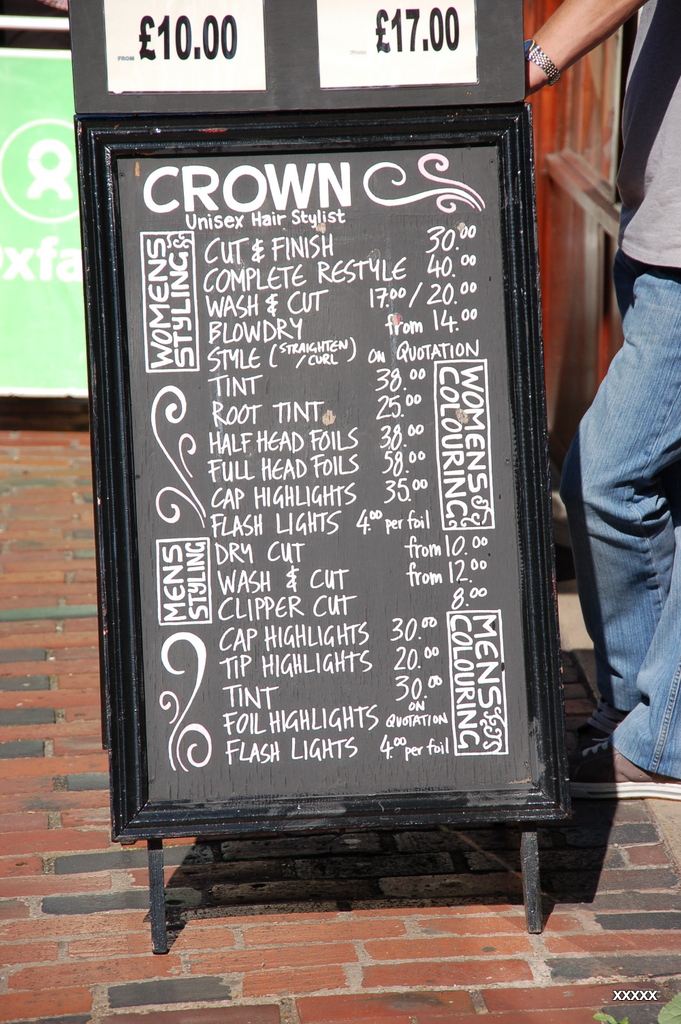 FROM £10.00 FROM £17.00
CROWN
Unisex Hair Stylist
WOMENS STYLING £
CUT & FINISH 30.00
COMPLETE RESTYLE 40.00
WASH & CUT 17.00 / 20.00
BLOWDRY from 14.00
STYLE (STRAIGHTEN /CURL) ON QUOTATION
WOMENS COLOURING £
TINT 38.00
ROOT TINT 25.00
HALF HEAD FOILS 38.00
FULL HEAD FOILS 58.00
CAP HIGHLIGHTS 35.00
FLASH LIGHTS 4.00 per foil
MENS STYLING
DRY CUT from 10.00
WASH & CUT from 12.00
CLIPPER CUT 8.00
MENS COLOURING £
CAP HIGHLIGHTS 30.00
TIP HIGHLIGHTS 20.00
TINT 30.00
FOIL HIGHLIGHTS ON QUOTATION
FLASH LIGHTS 4.00 per foil
xfa
xxxxx